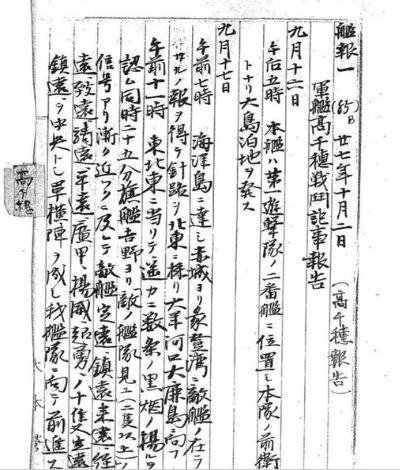 艦報一 廿七年十月二日 (高千穂報告)
軍艦高千穂戦闘記事報告
九月十二日
午后五時 本艦ハ第一遊撃隊ノ二番艦ニ位置シ本隊ノ前衛
トナリ大島泊地ヲ発ス
九月十七日
午前七時 海洋島ニ達シ赤城ヨリ象登湾ニ敵艦ノ在ラ
サルノ報ヲ得テ針路ヲ北東ニ採リ大羊河口大鹿島ニ向フ
午前十一時 東北東ニ当リテ遥カニ数条ノ黒烟ノ揚ルヲ
認ム同時二十五分旗艦吉野ヨリ敵ノ艦隊見ユ(三隻以上)ノ
信号アリ漸ク近ツクニ及ヒテ敵艦定遠鎮遠来遠経
遠致遠靖遠平遠廣甲揚威超勇ノ十隻定遠
鎮遠ヲ中央トシ単横陣ヲ成シ我艦隊ニ向テ前進ス
高千穂
大本営